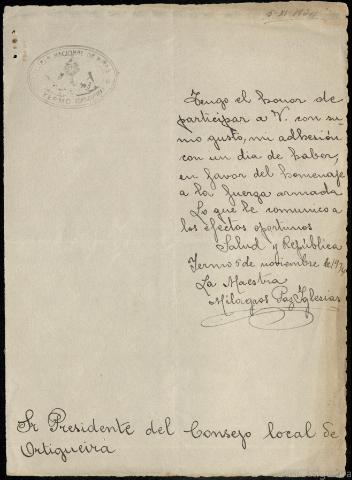 5-XI-1934
NACIONAL DE
YERMO
Tengo el honor de
participar a V. con su-
mo gusto, mi adhesión
con un dia de haber,
en favor del homenaje
a la fuerza armada
Lo que le comunico a
los efectos oportunos
Salud y República
Yermo 5 de noviembre de 1934
La Maestra
Milagros Paz Iglesias
Sr Presidente del Consejo local de
Ortigueira